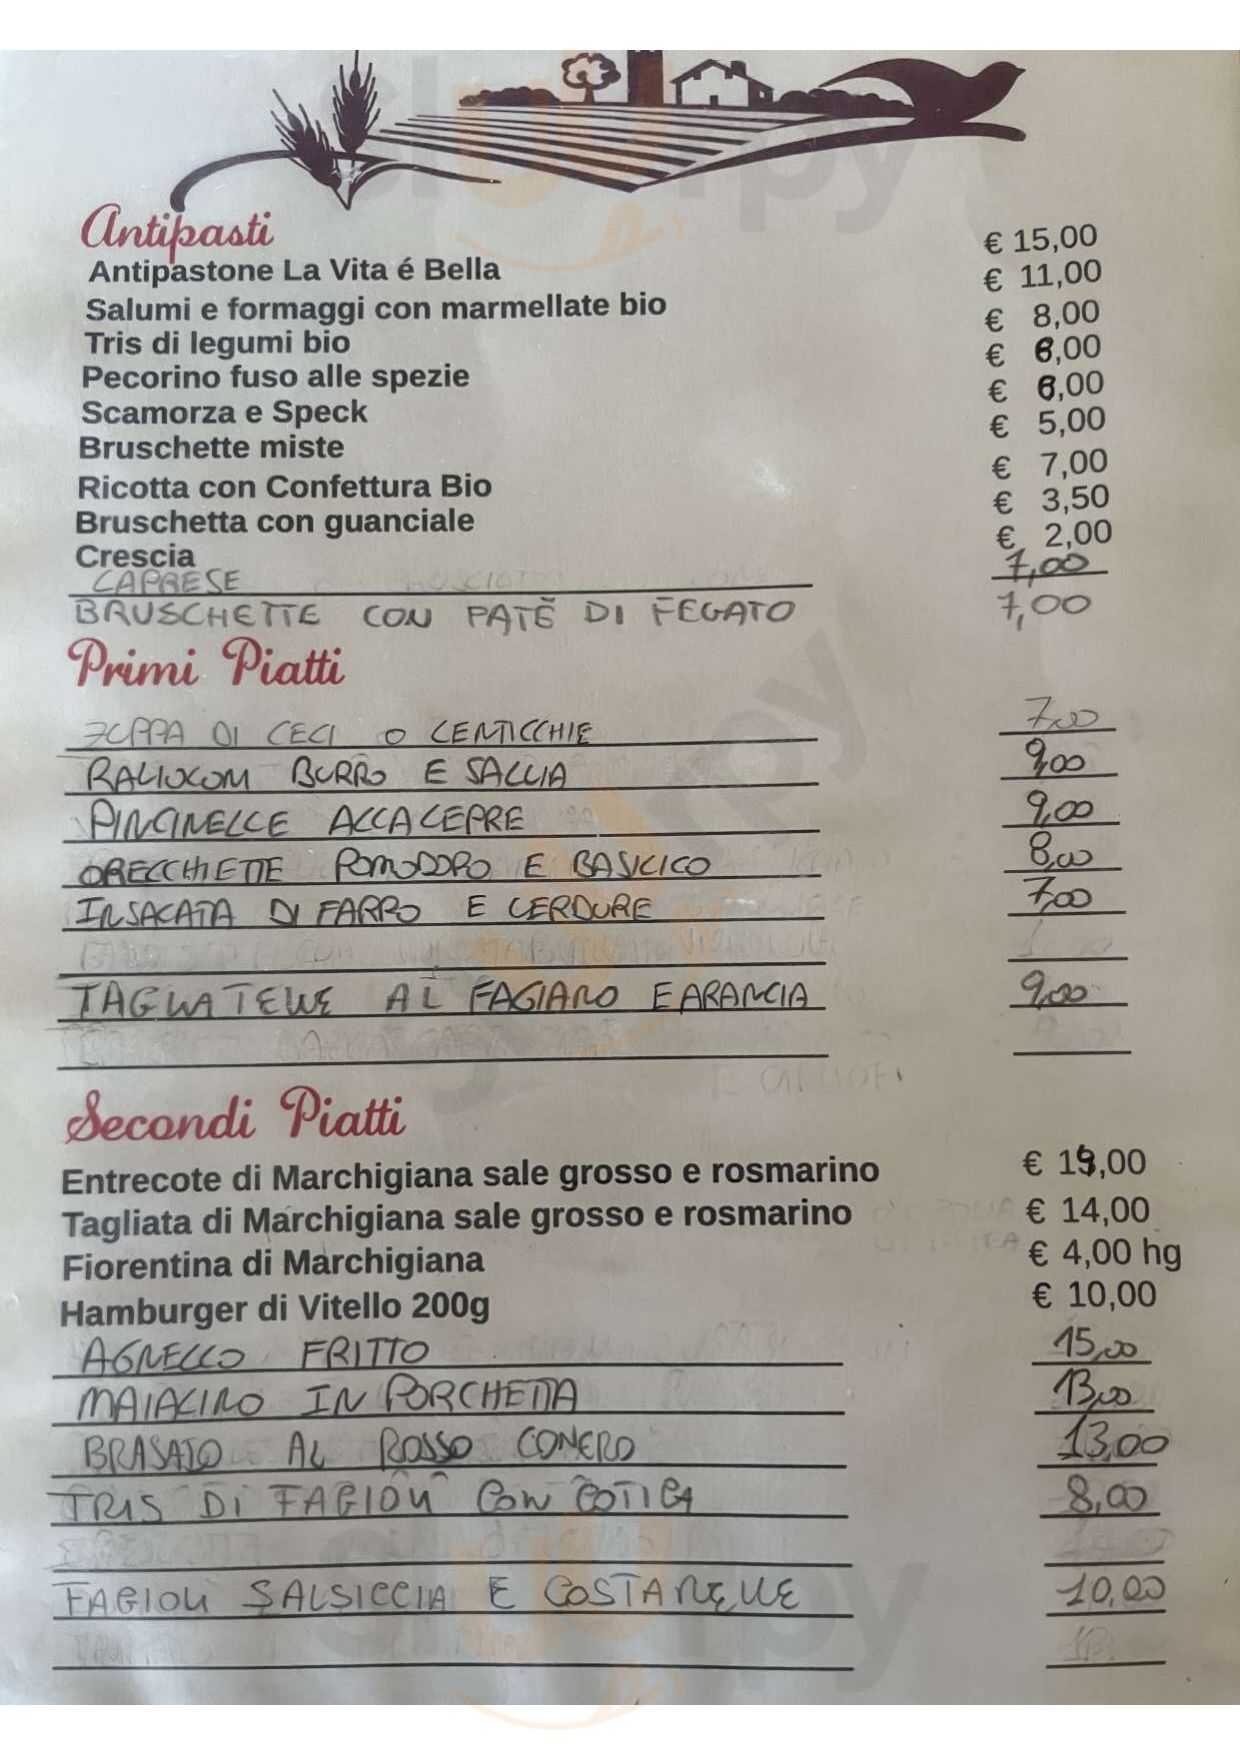 Antipasti
Antipastone La Vita é Bella € 15,00
Salumi e formaggi con marmellate bio € 11,00
Tris di legumi bio € 8,00
Pecorino fuso alle spezie € 6,00
Scamorza e Speck € 6,00
Bruschette miste € 5,00
Ricotta con Confettura Bio € 7,00
Bruschetta con guanciale € 3,50
Crescia € 2,00
CAPRESE 7,00
BRUSCHETTE CON PATÈ DI FEGATO 7,00
Primi Piatti
ZUPPA DI CECI O LENTICCHIE 7,00
BURRO E SALVIA 9,00
9,00
ORECCHIETTE POMODORO E BASILICO 8,00
INSALATA DI FARRO E VERDURE 7,00
TAGLIATELLE AL FAGIANO E ARANCIA 9,00
Secondi Piatti
Entrecote di Marchigiana sale grosso e rosmarino €
Tagliata di Marchigiana sale grosso e rosmarino € 14,00
Fiorentina di Marchigiana € 4,00 hg
Hamburger di Vitello 200g € 10,00
AGNELLO FRITTO 15,00
MAIALINO IN PORCHETTA 13,00
BRASATO AL ROSSO CONERO 13,00
TRIS DI FAGIOLI CON COTICA 8,00
FAGIOLI SALSICCIA E COSTARELLE 10,00